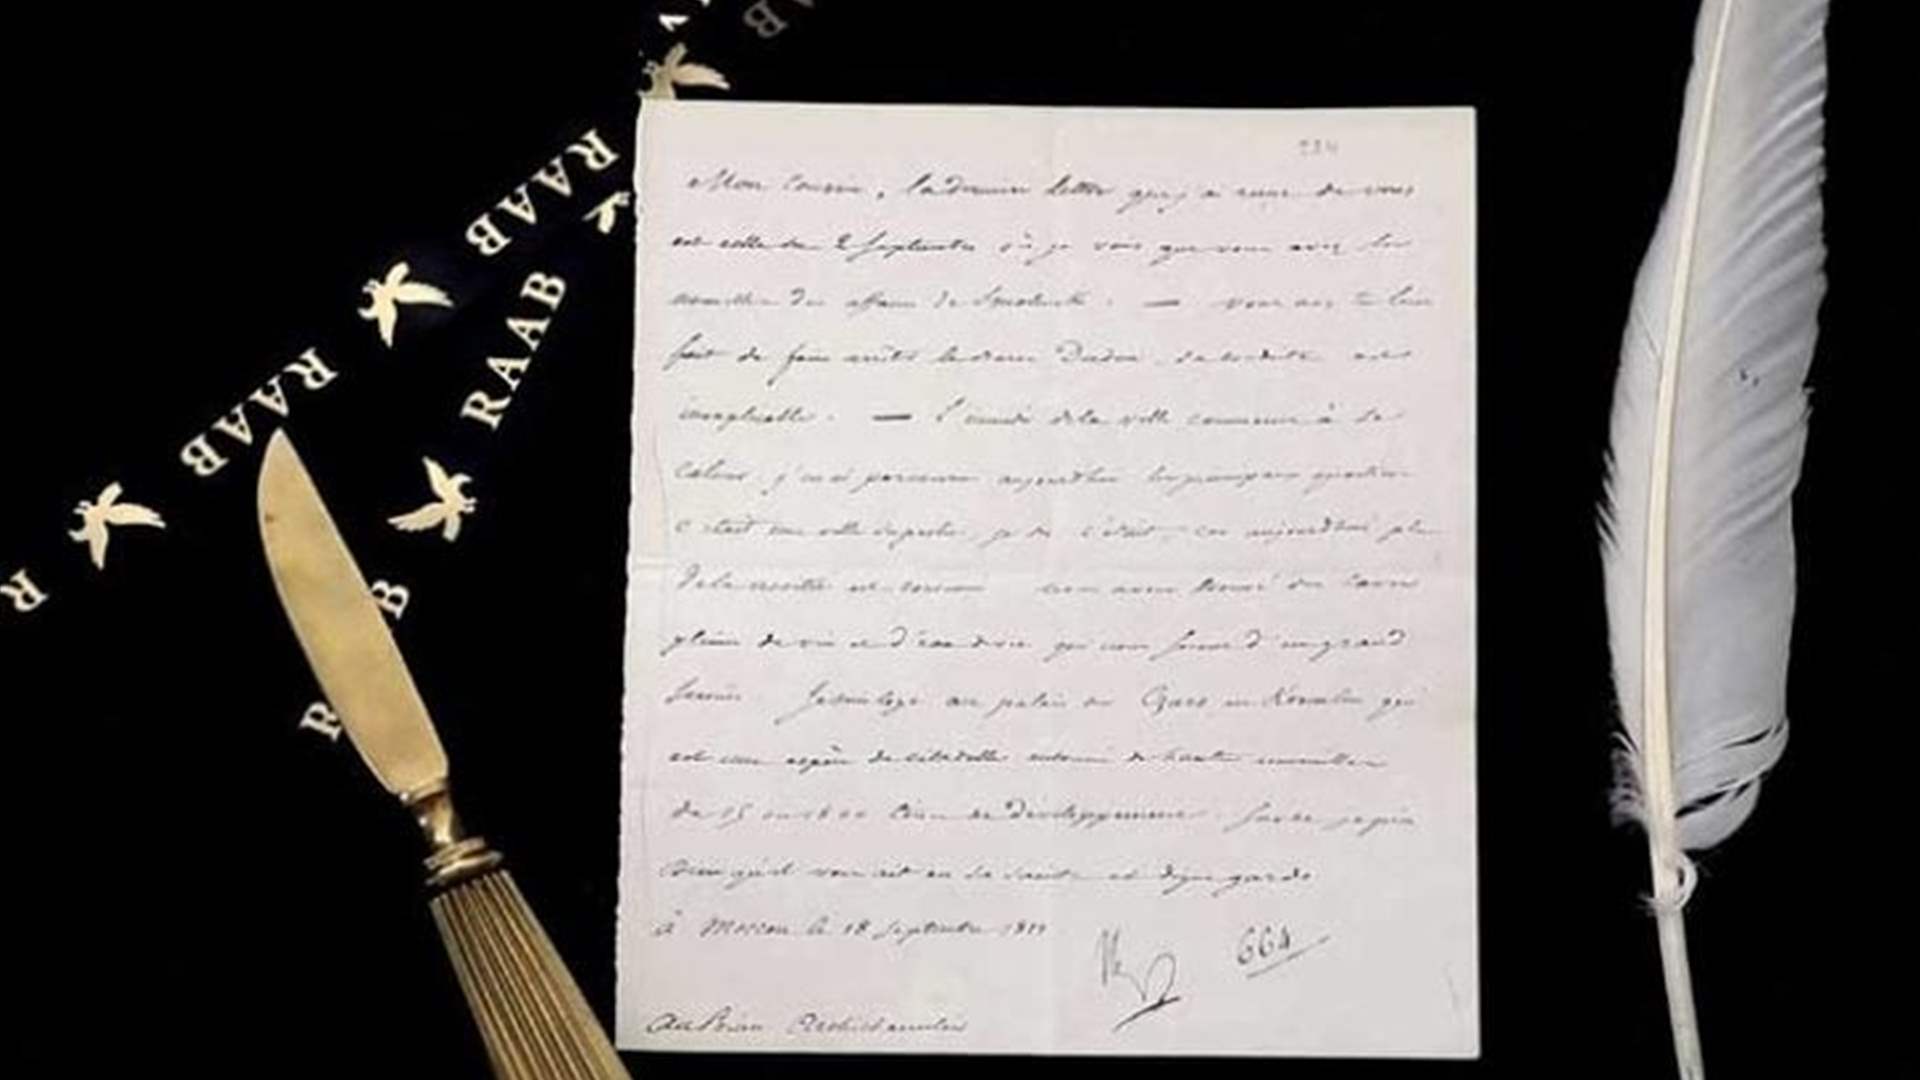 RAAB
RAAB
RAAB
RAAB
B
R
R
234
Mon Cousin, la dernière lettre que j'ai reçue de vous
est celle du 2 Septembre où je vois que vous avez les
nouvelles des affaires de Smolensk. — vous avez très bien
fait de faire arrêter le Dudon, sa conduite est
inexplicable. — L'incendie de la ville commence à se
calmer, j'en ai parcouru aujourd'hui les principaux quartiers
c'était une ville superbe, je dis c'était, car aujourd'hui plus
de la moitié est nous avons trouvé des caves
pleines de vin et d'eau de vie qui nous seront d'un grand
secours Je suis logé au palais des Czars au Kremlin qui
est une espèce de citadelle entourée de hautes murailles
de 15 à de développement. Sur ce je prie
Dieu qu'il vous ait en sa sainte et digne garde
à Moscou le 18 Septembre 1812
Np 664
Au Prince Archichancelier